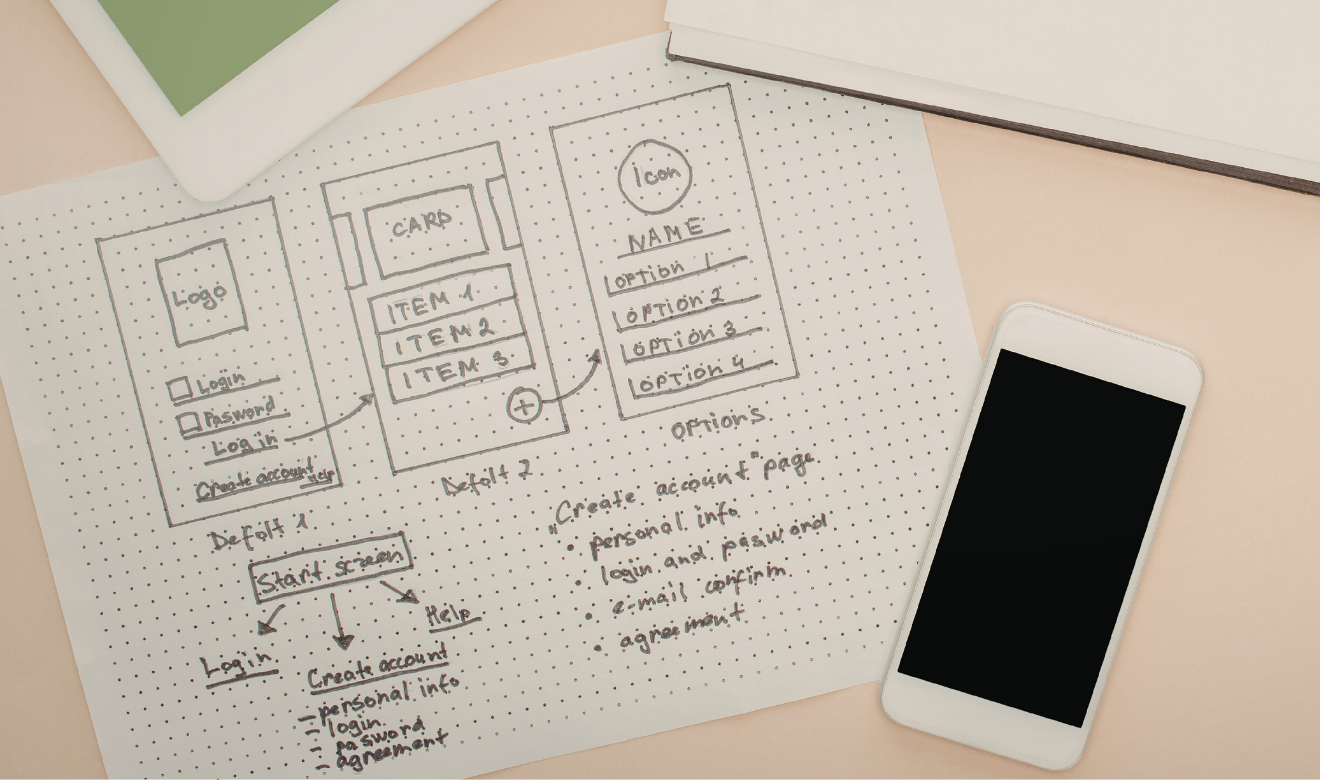 Logo
Login
Pasword
Log in
Create account Help
Defolt 1
CARD
ITEM 1
ITEM 2
ITEM 3
+
Defolt 2
Icon
NAME
OPTION 1
OPTION 2
OPTION 3
OPTION 4
OPTIONS
Start screen
Login
Create account
- personal info
- login
- pasword
- agreement
Help
„Create account" page
• personal info
• login and pasword
• e-mail confirm
• agreement